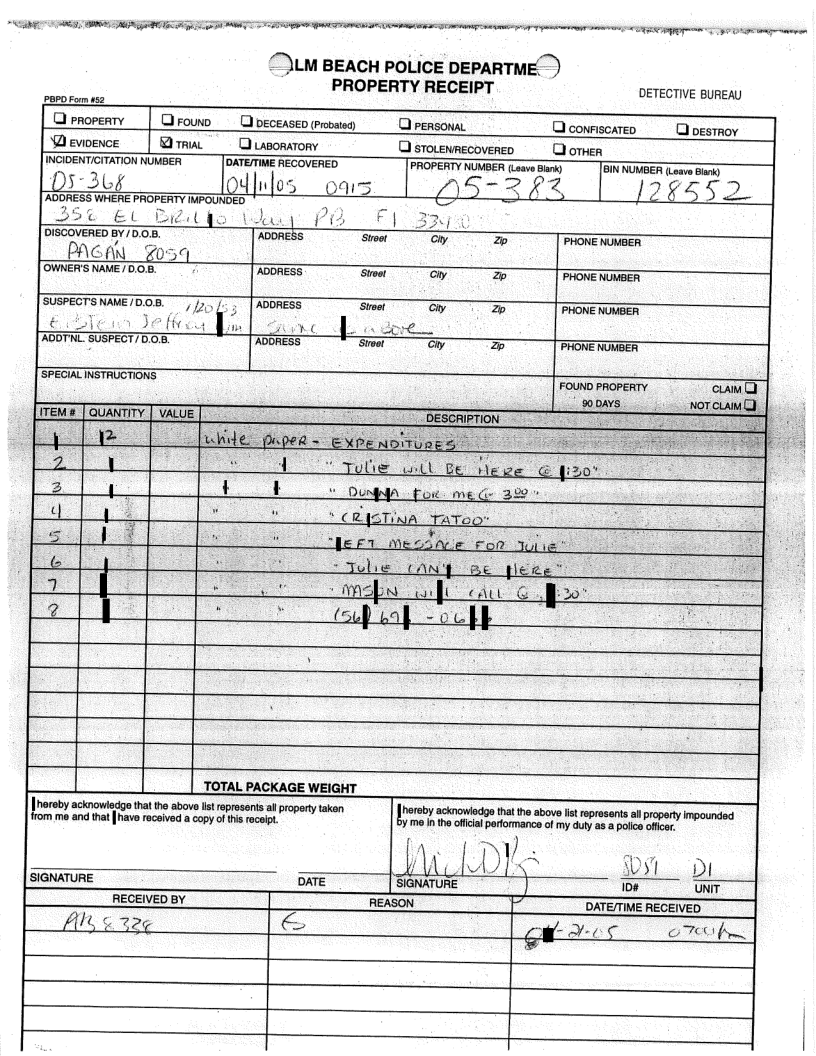 LM BEACH POLICE DEPARTME
PROPERTY RECEIPT
DETECTIVE BUREAU
PBPD Form #52
PROPERTY FOUND DECEASED (Probated) PERSONAL CONFISCATED DESTROY
EVIDENCE TRIAL LABORATORY STOLEN/RECOVERED OTHER
INCIDENT/CITATION NUMBER DATE/TIME RECOVERED PROPERTY NUMBER (Leave Blank) BIN NUMBER (Leave Blank)
05-368 04/11/05 0915 05-383 128552
ADDRESS WHERE PROPERTY IMPOUNDED
358 EL BRILLO Way PB Fl 33480
DISCOVERED BY / D.O.B. ADDRESS Street City Zip PHONE NUMBER
PAGAN 8059
OWNER'S NAME / D.O.B. ADDRESS Street City Zip PHONE NUMBER
SUSPECT'S NAME / D.O.B. 1/20/53 ADDRESS Street City Zip PHONE NUMBER
Epstein Jeffrey Same above
ADDT'NL. SUSPECT / D.O.B. ADDRESS Street City Zip PHONE NUMBER
SPECIAL INSTRUCTIONS
FOUND PROPERTY CLAIM
90 DAYS NOT CLAIM
ITEM # QUANTITY VALUE DESCRIPTION
1 12 white paper - EXPENDITURES
2 1 " " " JULIE WILL BE HERE @ 1:30"
3 1 " DONNA FOR ME @ 3:00"
4 1 " " "CRISTINA TATOO"
5 1 " " "LEFT MESSAGE FOR JULIE"
6 1 " " "JULIE CAN'T BE HERE"
7 " " "MASON WILL CALL @ :30"
8 " " (56 69 - 06
TOTAL PACKAGE WEIGHT
I hereby acknowledge that the above list represents all property taken
from me and that I have received a copy of this receipt.
I hereby acknowledge that the above list represents all property impounded
by me in the official performance of my duty as a police officer.
8059 DI
SIGNATURE DATE SIGNATURE ID# UNIT
RECEIVED BY REASON DATE/TIME RECEIVED
AB 8338 E -21-05